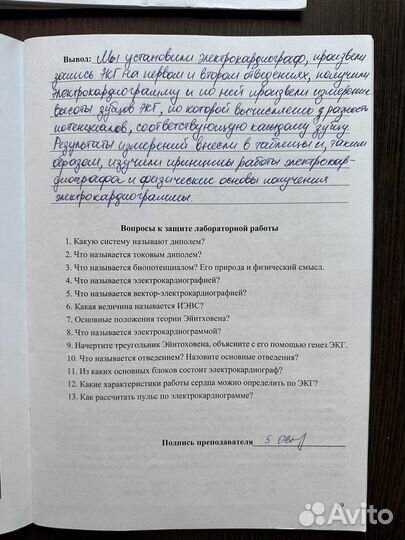 Вывод: Мы установили электрокардиограф, произвели
запись ЭКГ на первом и втором отведениях, получили
электрокардиограмму и по ней произвели измерение
высоты зубцов ЭКГ, по которой вычислили разность
потенциалов, соответствующую каждому зубцу.
Результаты измерений внесли в таблицы и, таким
образом, изучили принципы работы электрокар-
диографа и физические основы получения
электрокардиограммы.
Вопросы к защите лабораторной работы
1. Какую систему называют диполем?
2. Что называется токовым диполем?
3. Что называется биопотенциалом? Его природа и физический смысл.
4. Что называется электрокардиографией?
5. Что называется вектор-электрокардиографией?
6. Какая величина называется ИЭВС?
7. Основные положения теории Эйнтховена?
8. Что называется электрокардиограммой?
9. Начертите треугольник Эйнтховена, объясните с его помощью генез ЭКГ.
10. Что называется отведением? Назовите основные отведения?
11. Из каких основных блоков состоит электрокардиограф?
12. Какие характеристики работы сердца можно определить по ЭКГ?
13. Как рассчитать пульс по электрокардиограмме?
Подпись преподавателя 5
9
Avito